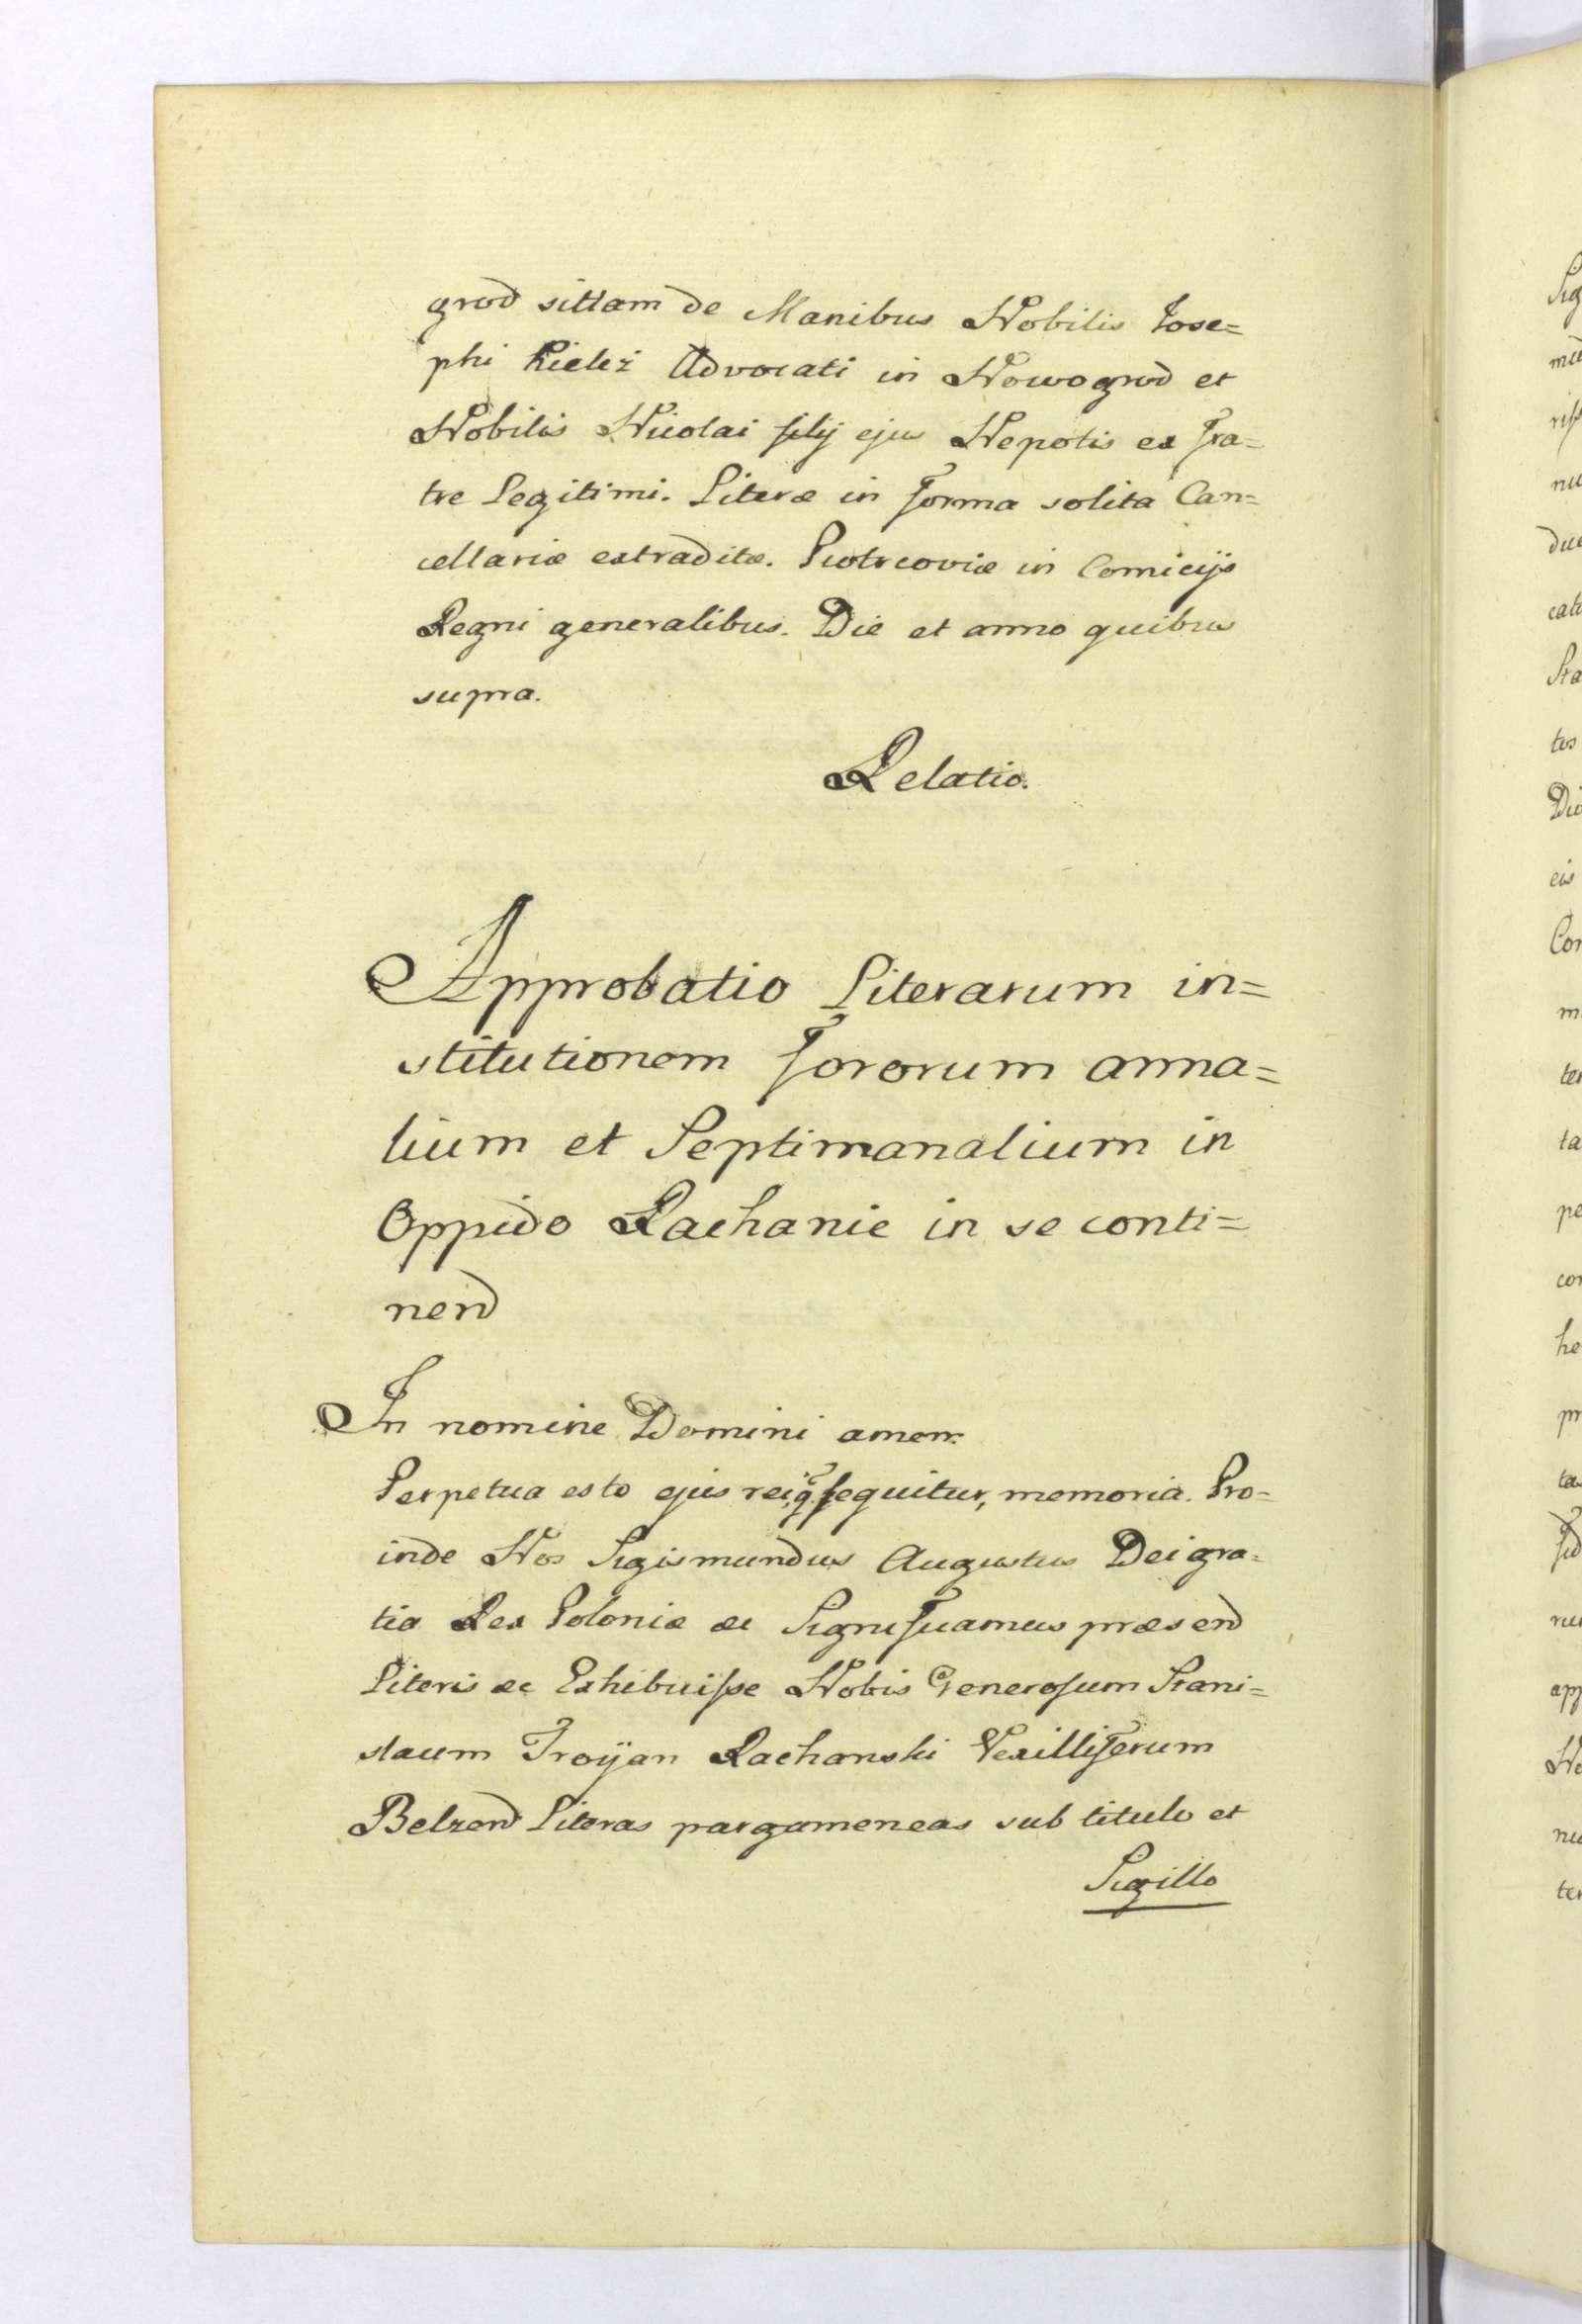 grod sittam de Manibus Nobilis Jose=
phi Kielcz Advocati in Nowogrod et
Nobilis Nicolai filij ejus Nepotis ex fra=
tre Legitimi. Literæ in forma solita Can=
cellariæ extraditæ. Piotrcoviæ in Comicijs
Regni generalibus. Die et anno quibus
supra.
Relatio.
Approbatio Literarum in=
stitutionem fororum anna=
lium et Septimanalium in
Oppido Rachanie in se conti=
nend
In nomine Domini amen.
Perpetua esto ejus rei, q sequitur, memoria. Pro=
inde Nos Sigismundus Augustus Dei gra=
tia Rex Poloniæ &c Significamus præsend
Literis &c Exhibuisse Nobis Generosum Stani=
slaum Troijan Rachanski Vexilliferum
Belzend Literas pargameneas sub titulo et
Sigillo